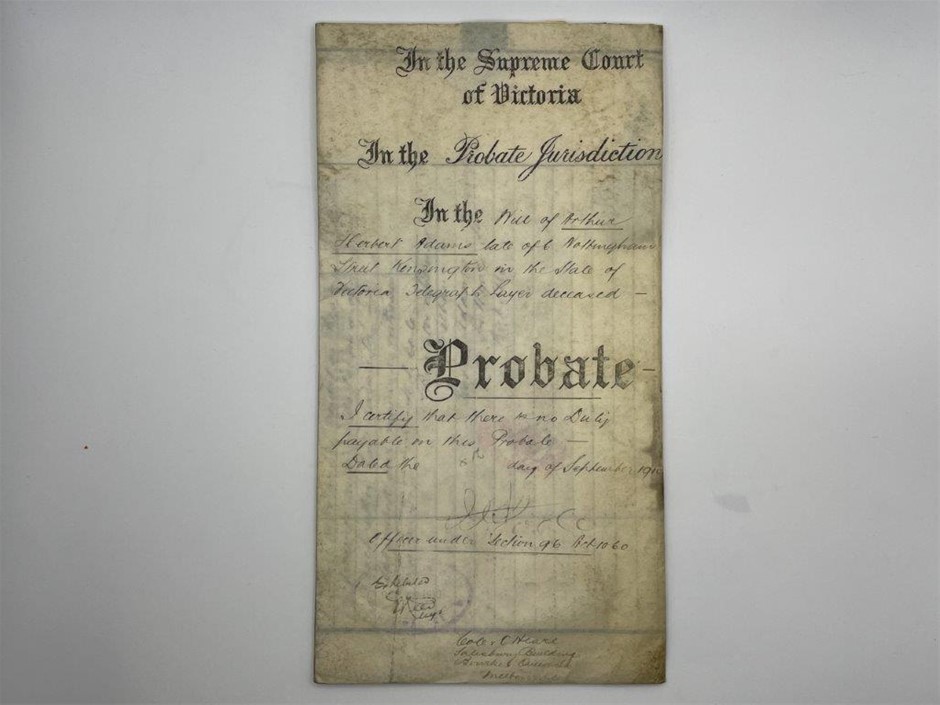 In the Supreme Court
of Victoria
In the Probate Jurisdiction
In the Will of Arthur
Herbert Adams late of 6 Nottingham
Street Kensington in the State of
Victoria Telegraph Layer deceased —
— Probate —
I certify that there is no Duty
payable on this Probate —
Dated the 8th day of September
Officer under Section 96 Act 1060
Cole & O'Heare
Building
Melb